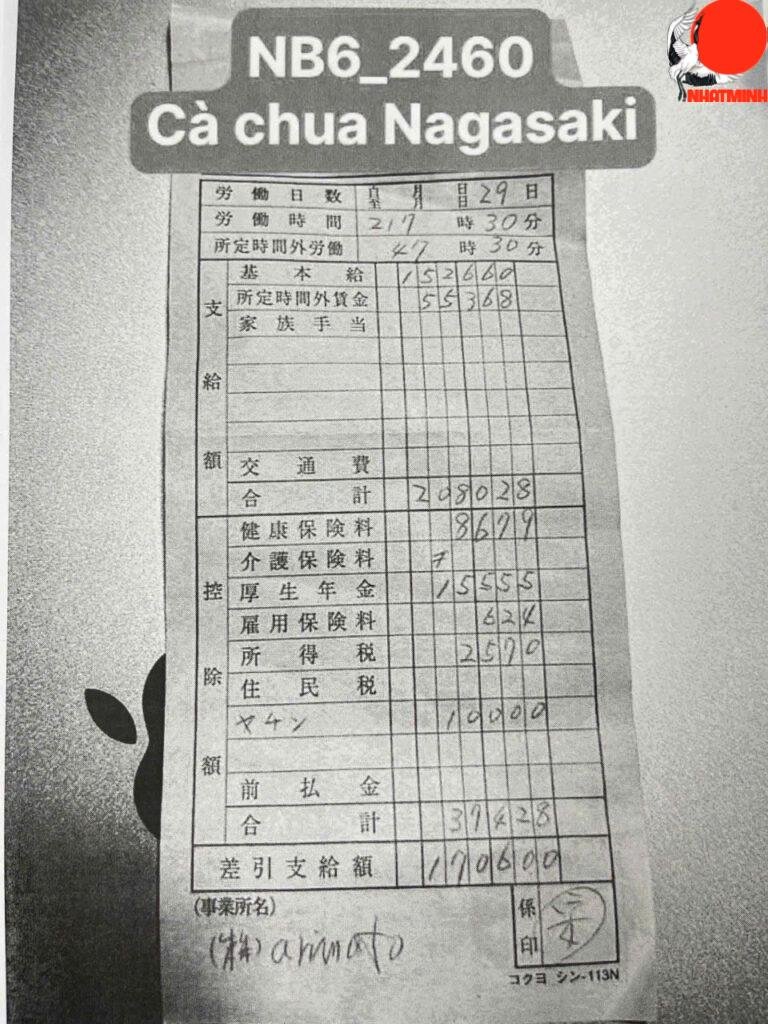 NHATMINH
NB6_2460
Cà chua Nagasaki
労働日数 自 月 日 至 月 日 29日
労働時間 217時30分
所定時間外労働 47時30分
支給額
基本給 152660
所定時間外賃金 55368
家族手当
交通費
合計 208028
控除額
健康保険料 8679
介護保険料
厚生年金 15555
雇用保険料 624
所得税 2570
住民税
ヤチン 10000
前払金
合計 37428
差引支給額 170600
(事業所名) 係印
(株) arimoto
コクヨ シン-113N